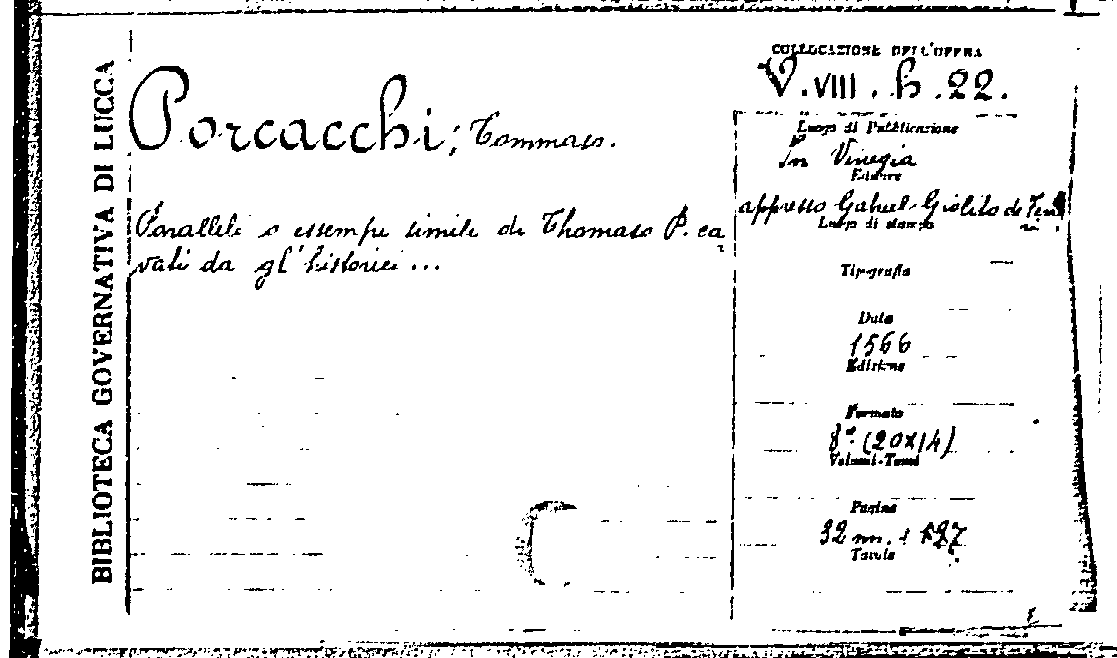 BIBLIOTECA GOVERNATIVA DI LUCCA
Porcacchi, Tommaso.
Paralleli o essempi simili di Thomaso P. ca
vati da gl'historici ...
COLLOCAZIONE DELL'OPERA
V.VIII. h .22.
Luogo di Pubblicazione
In Vinegia
Editore
appresso Gabriel Giolito de Fer
ri
Luogo di stampa
Tipografia
Data
1566
Edizione
Formato
8° (20x14)
Volumi-Tomi
Pagine
32 nn. +
Tavole